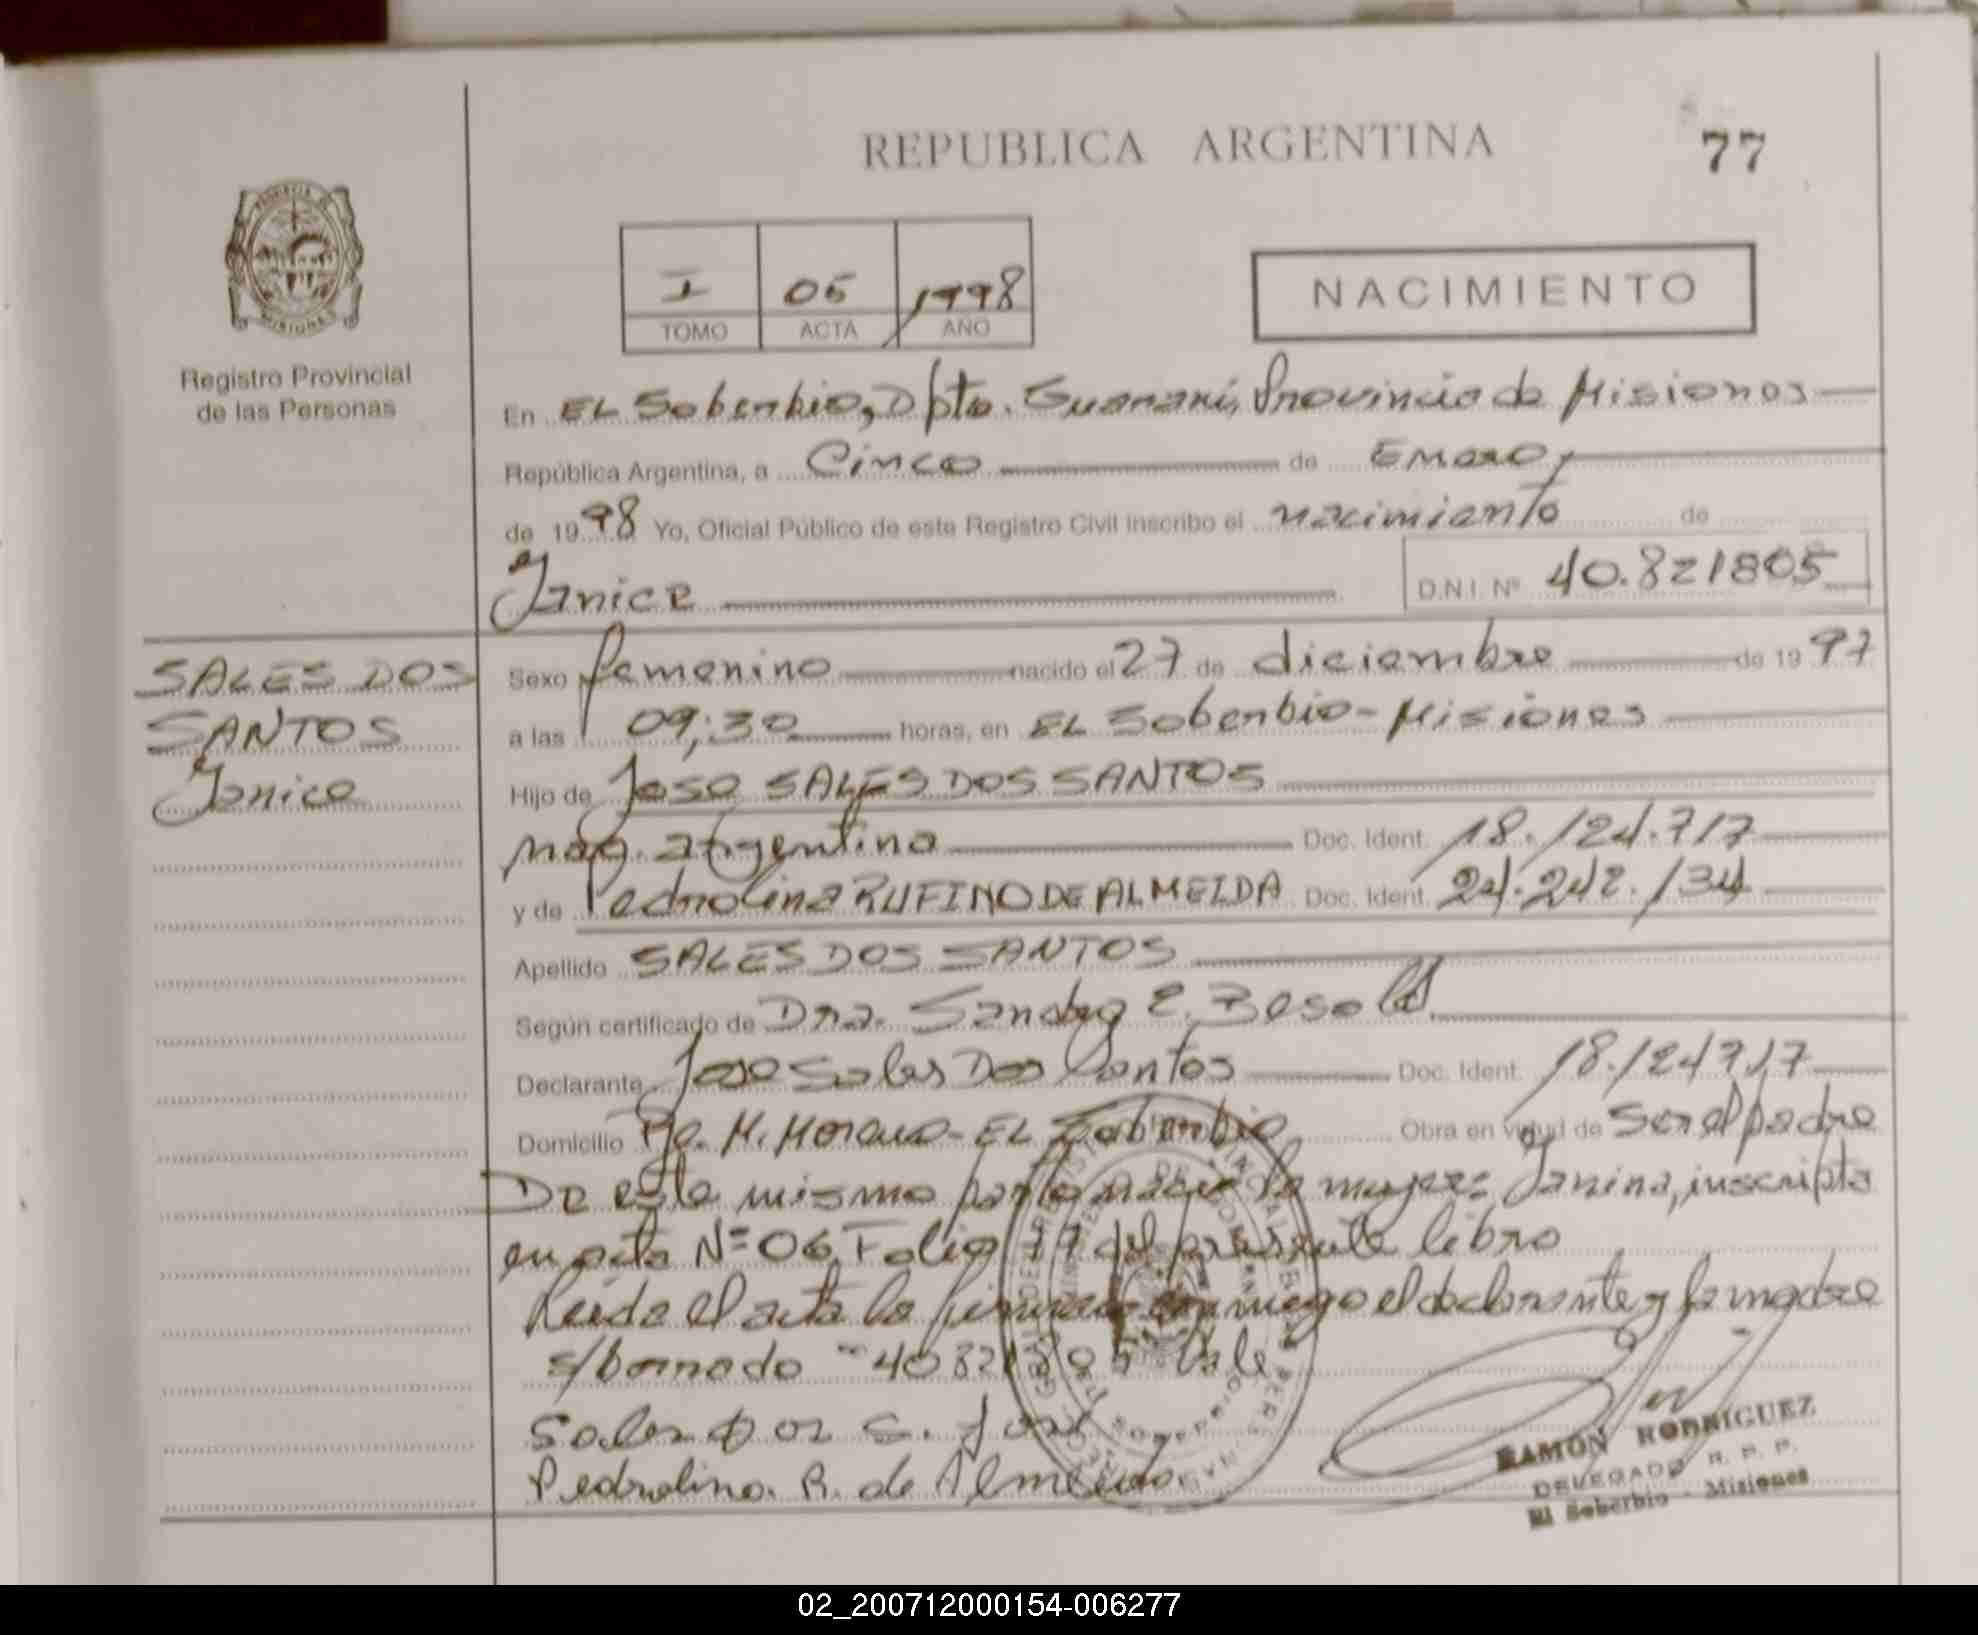 REPUBLICA ARGENTINA
77
PROVINCIA DE MISIONES
Registro Provincial
de las Personas
I 05 1998
TOMO ACTA AÑO
NACIMIENTO
En EL Soberbio, Dpto. Guaraní, Provincia de Misiones
República Argentina, a Cinco de Enero,
de 1998 Yo, Oficial Público de este Registro Civil inscribo el nacimiento de
Janice
D.N.I. Nº 40.821805
SALES DOS
SANTOS
Janice
Sexo femenino nacido el 27 de diciembre de 1997
a las 09;30 horas, en EL Soberbio - Misiones
Hijo de Jose SALES DOS SANTOS
nac. argentina Doc. Ident. 18.124.717
y de Pedrolina RUFINO DE ALMEIDA Doc. Ident. 24.242.134
Apellido SALES DOS SANTOS
Según certificado de Dra. Sandra E.
Declarante Jose Sales Dos Santos Doc. Ident. 18.124717
Domicilio M. Moreno - EL Soberbio Obra en virtud de Ser el padre
De este mismo parto nace la mujer: Janina, inscripta
en acta Nº 06, Folio 77 del presente libro
Leida el acta la firman conmigo el declarante y la madre
s/borrado "40821805 Vale
Sales Dos S. José
Pedrolina. R. de Almeida
RAMON RODRIGUEZ
DELEGADO R. P. P.
El Soberbio - Misiones
02_200712000154-006277